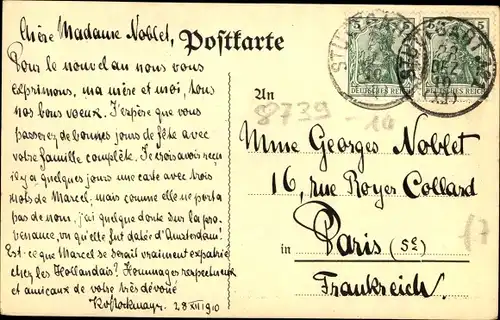 Chère Madame Noblet,
Pour le nouvel an nous vous
exprimons, ma mère et moi, tous
nos bons voeux. J'espère que vous
passerez de bonnes jours de fête avec
votre famille complète. Je crois avoir reçu
il y a quelques jours une carte avec trois
mots de Marcel; mais comme elle ne porta
pas de nom, j'ai quelque doute sur la pro-
venance, vu qu'elle fut datée d'Amsterdam!
Est-ce que Marcel se serait vraiment expatrié
chez les Hollandais? Hommages respectueux
et amicaux de votre très dévoué
28 XII 1910
Postkarte
5 5
DEUTSCHES REICH DEUTSCHES REICH
STUTTGART
An
8739-14
Mme Georges Noblet
16, rue Royer Collard
in Paris (5e)
Frankreich.
17